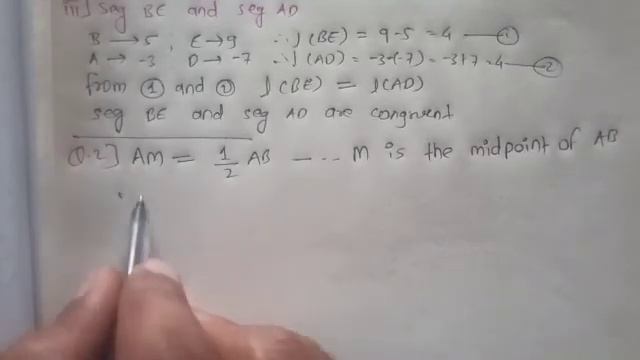 iii] seg BE and seg AD
B → 5 , E → 9 ∴ l(BE) = 9-5 = 4 — ①
A → -3 D → -7 ∴ l(AD) = -3-(-7) = -3+7 = 4 — ②
from ① and ② l(BE) = l(AD)
seg BE and seg AD are congruent
Q.2] AM = 1/2 AB - ... M is the midpoint of AB